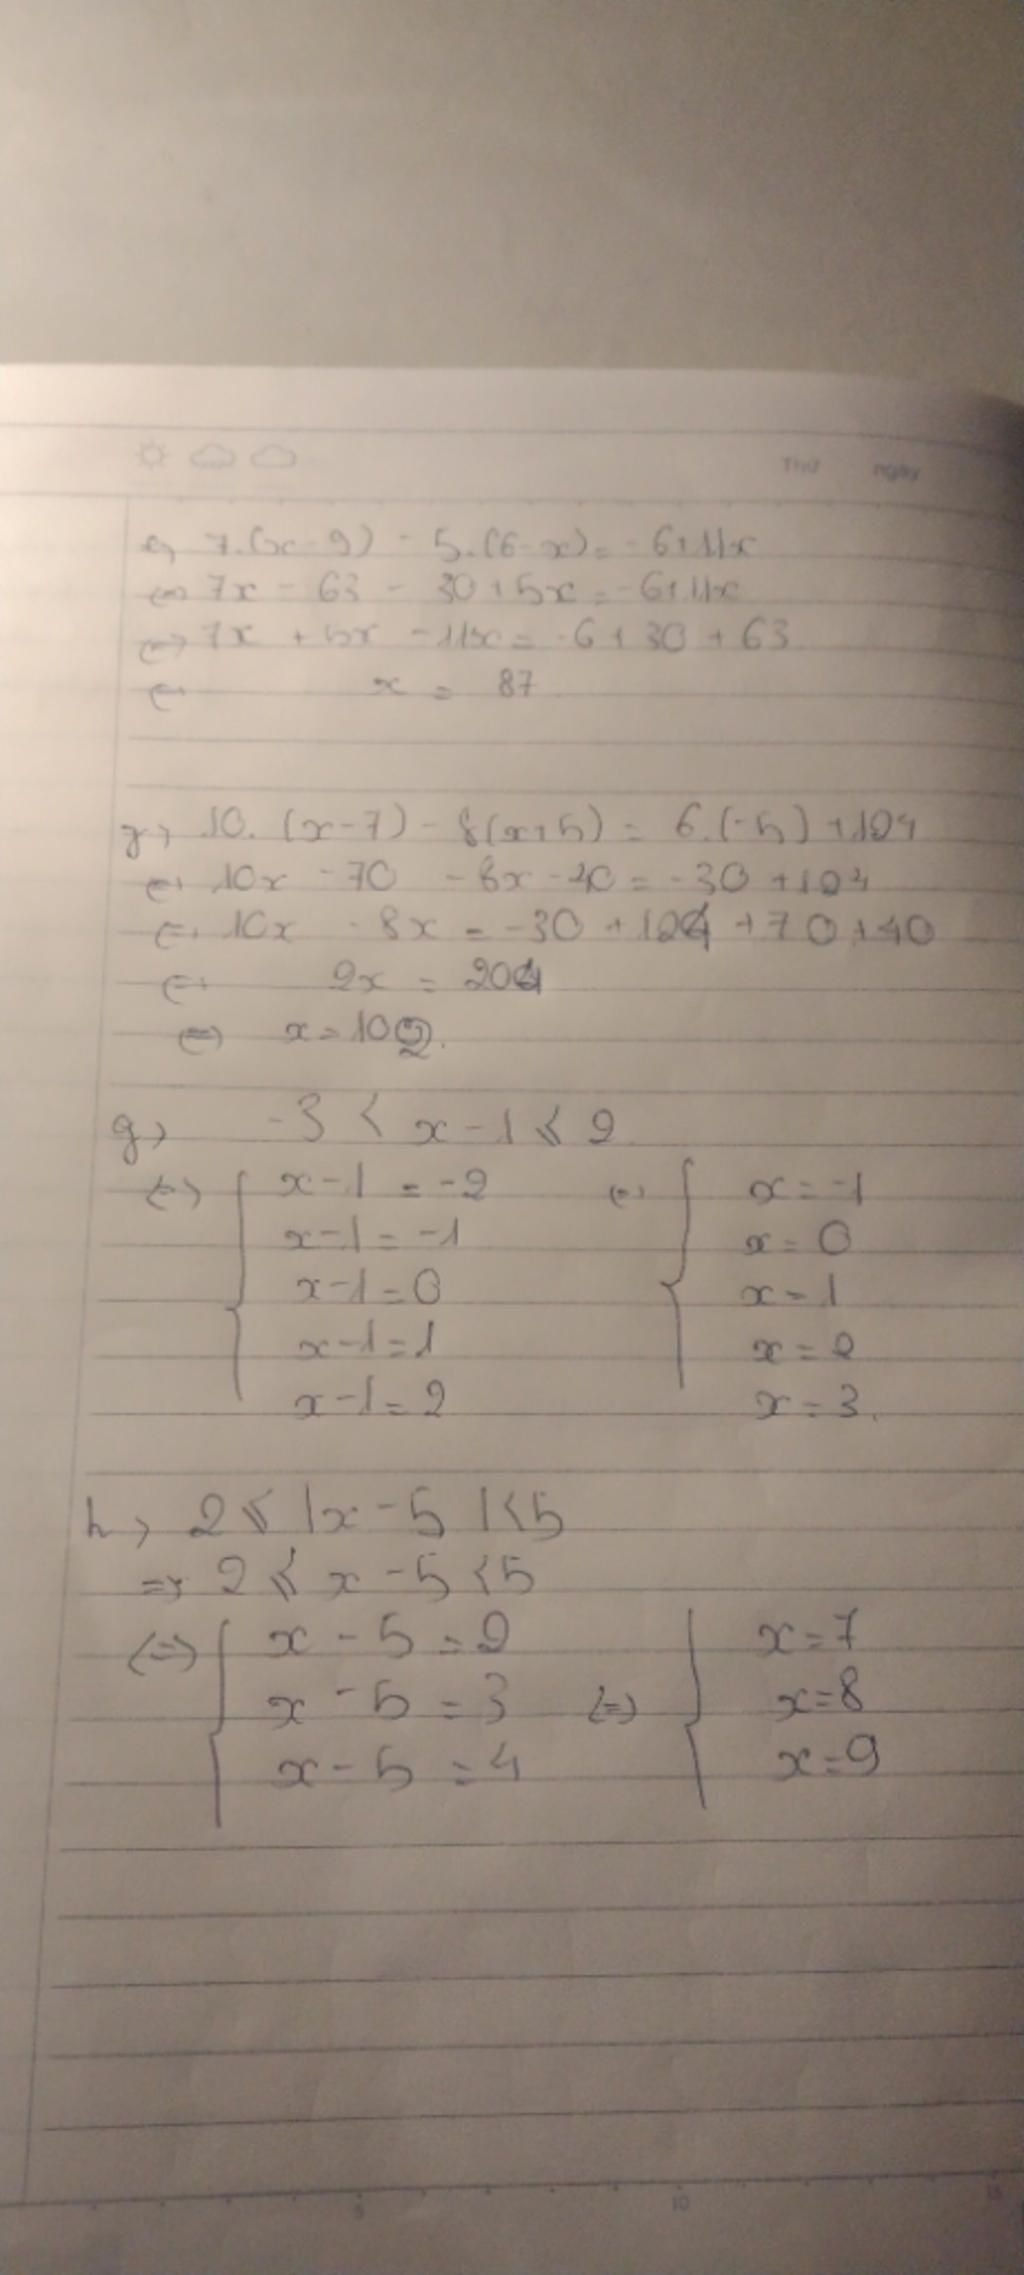 Thứ ngày
e, 7.(x-9) - 5.(6-x) = -6+11x
<=> 7x - 63 - 30 + 5x = -6+11x
<=> 7x + 5x - 11x = -6 + 30 + 63
<=> x = 87
10.(x-7) - 8(x+5) = 6.(-5) + 104
<=> 10x - 70 - 8x - 40 = -30 + 104
<=> 10x - 8x = -30 + 124 + 70 + 40
<=> 2x = 204
<=> x = 102.
g, -3 < x - 1 ⩽ 2
<=> { x-1 = -2 <=> { x = -1
x-1 = -1 x = 0
x-1 = 0 x = 1
x-1 = 1 x = 2
x-1 = 2 x = 3.
h, 2 ⩽ |x-5| < 5
=> 2 ⩽ x - 5 < 5
<=> { x - 5 = 2 { x = 7
x - 5 = 3 <=> x = 8
x - 5 = 4 x = 9
5 10 15